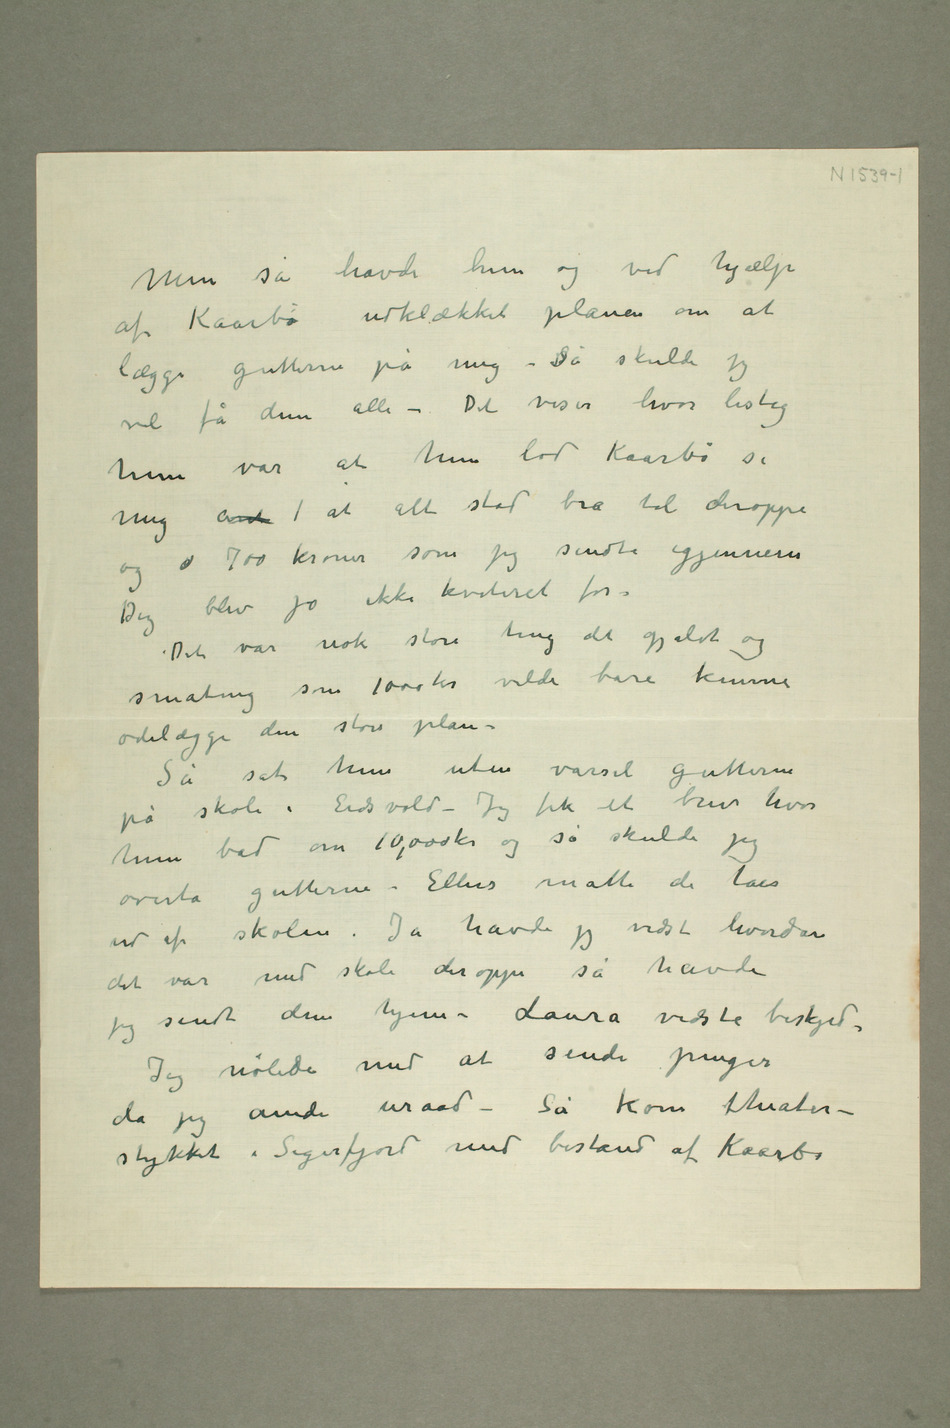 N 1539-1
Men så havde hun og ved hjælp
af Kaarbø udklækket planen om at
lægge gutterne på mig – Så skulde jg
vel få dem alle – Det viser hvor listig
hun var at hun lod Kaarbø si
mig at alt stod bra til deroppe
og 700 kroner som jeg sendte igjennem
Dig blev jo ikke kvitéret for –
Det var nok store ting det gjaldt og
småting som 1000 kr vilde bare kunne
ødelægge den store plan –
Så sat hun uten varsel gutterne
på skole i Eidsvold – Jeg fik et brev hvor
hun bad om 10,000 kr og så skulde jeg
overta gutterne – Ellers måtte de taes
ud af skolen. Ja havde jg vidst hvordan
det var med skole deroppe så havde
jg sendt dem hjem – Laura vidste beskjed –
Jeg nølede med at sende penger
da jeg anede uraad – Så kom theater–
stykket i Sigerfjord med bistand af Kaarbø